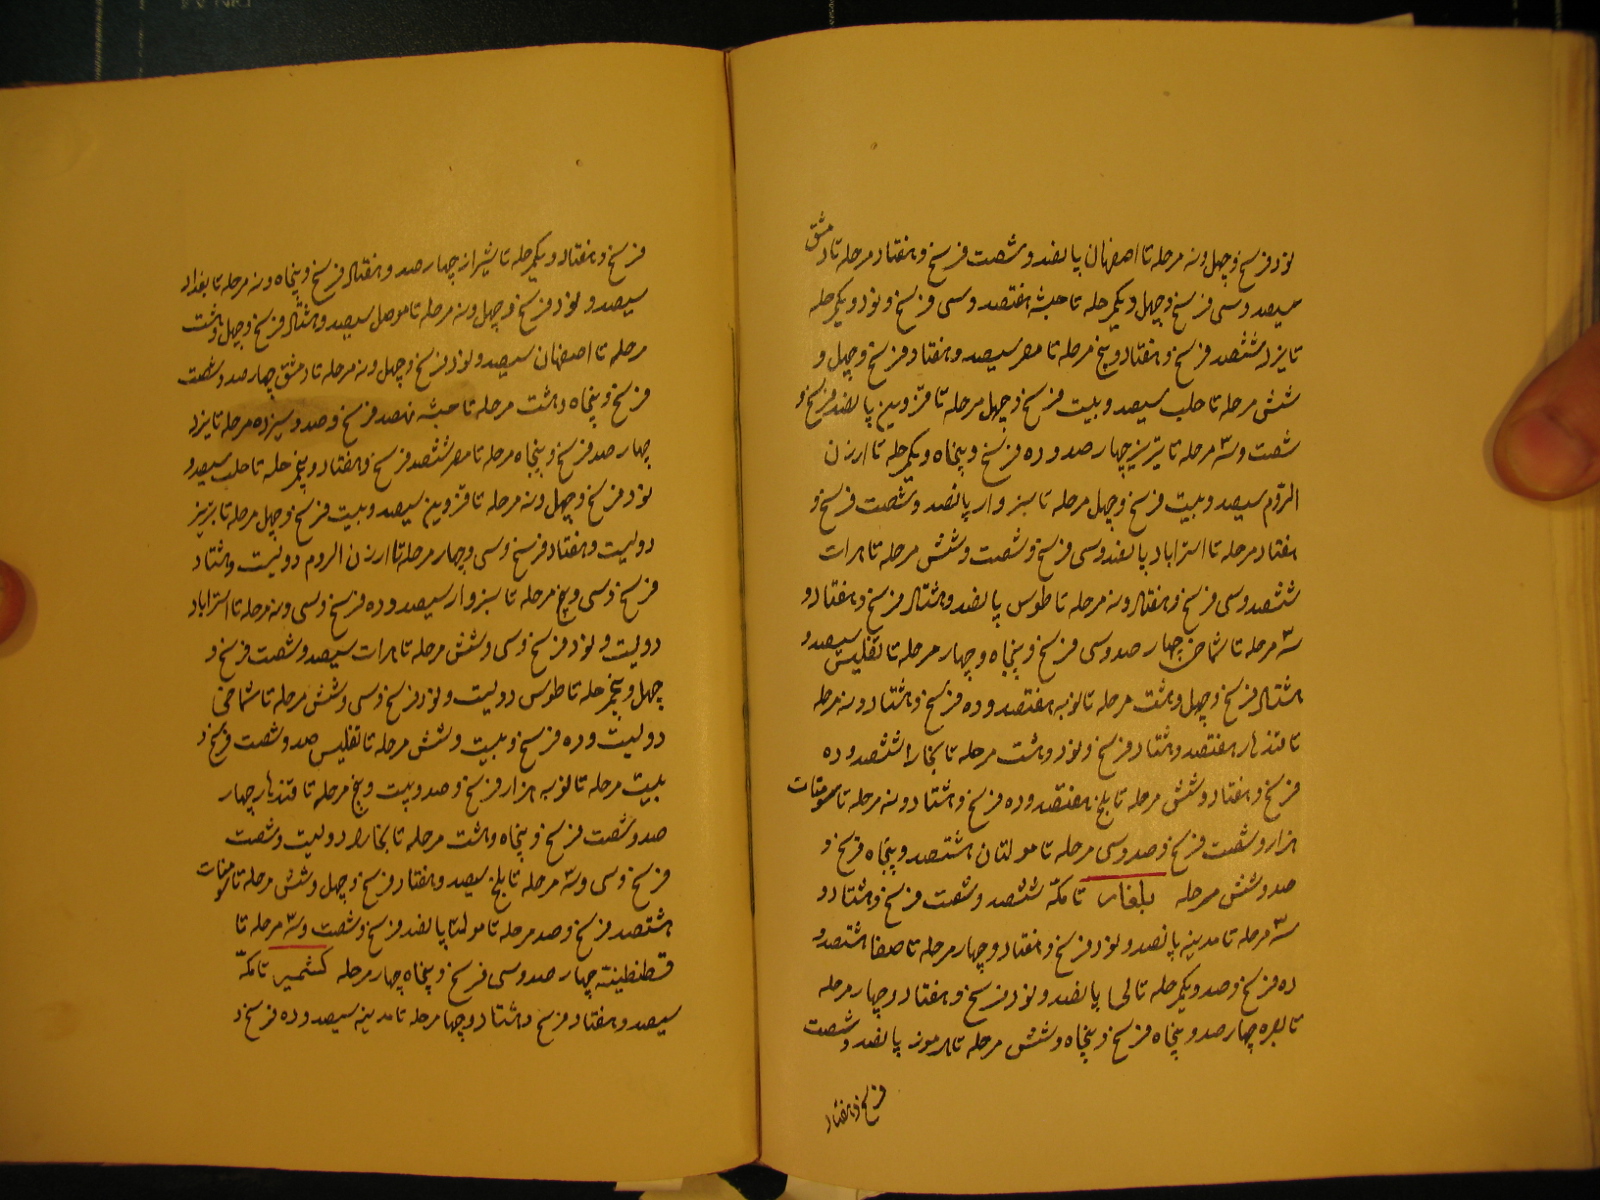 نود فرسخ و چهل و نه مرحله تا اصفهان پانصد و شصت فرسخ و هفتاد مرحله تا دمشق
سیصد و سی فرسخ و چهل و یکمرحله تا حبشه هفتصد و سی فرسخ و نود و یکمرحله
تا یزد ششصد فرسخ و هفتاد و پنج مرحله تا مصر سیصد و هفتاد فرسخ و چهل و
شش مرحله تا حلب سیصد و بیست فرسخ و چهل مرحله تا قزوین پانصد فرسخ و
شصت و سه مرحله تا تبریز چهار صد و ده فرسخ و پنجاه و یکمرحله تا ارزن
الروم سیصد و بیست فرسخ و چهل مرحله تا سبزوار پانصد و شصت فرسخ و
هفتاد مرحله تا استراباد پانصد و سی فرسخ و شصت و شش مرحله تا هرات
ششصد و سی فرسخ و هفتاد و نه مرحله تا طوس پانصد و هشتاد فرسخ و هفتاد و
سه مرحله تا شماخی چهار صد و سی فرسخ و پنجاه و چهار مرحله تا تفلیس سیصد و
هشتاد فرسخ و چهل و هشت مرحله تا نوبه هفتصد و ده فرسخ و هشتاد و نه مرحله
تا قندهار هفتصد و هشتاد فرسخ و نود و هشت مرحله تا بخارا ششصد و ده
فرسخ و هفتاد و شش مرحله تا بلخ هفتصد و ده فرسخ و هشتاد و نه مرحله تا سومنات
هزار و شصت فرسخ و صد و سی مرحله تا مولتان هشتصد و پنجاه فرسخ و
صد و شش مرحله بلغار تا مکه ششصد و شصت فرسخ و هشتاد و
سه مرحله تا مدینه پانصد و نود فرسخ و هفتاد و چهار مرحله تا صنعا هشتصد و
ده فرسخ و صد و یکمرحله تا لحسا پانصد و نود فرسخ و هفتاد و چهار مرحله
تا بصره چهار صد و پنجاه فرسخ و پنجاه و شش مرحله تا هرموز پانصد و شصت
فرسخ و هفتاد
فرسخ و هفتاد و یکمرحله تا شیراز چهار صد و هفتاد فرسخ و پنجاه و نه مرحله تا بغداد
سیصد و نود فرسخ و چهل و نه مرحله تا موصل سیصد و هشتاد فرسخ و چهل و هشت
مرحله تا اصفهان سیصد و نود فرسخ و چهل و نه مرحله تا دمشق چهار صد و شصت
فرسخ و پنجاه و هشت مرحله تا حبشه نهصد فرسخ و صد و سیزده مرحله تا یزد
چهار صد فرسخ و پنجاه مرحله تا مصر ششصد فرسخ و هفتاد و پنجمرحله تا حلب سیصد و
نود فرسخ و چهل و نه مرحله تا قزوین سیصد و بیست فرسخ و چهل مرحله تا تبریز
دویست و هفتاد فرسخ و سی و چهار مرحله تا ارزن الروم دویست و هشتاد
فرسخ و سی و پنج مرحله تا سبزوار سیصد و ده فرسخ و سی و نه مرحله تا استراباد
دویست و نود فرسخ و سی و شش مرحله تا هرات سیصد و شصت فرسخ و
چهل و پنجمرحله تا طوس دویست و نود فرسخ و سی و شش مرحله تا شماخی
دویست و ده فرسخ و بیست و شش مرحله تا تفلیس صد و شصت فرسخ و
بیست مرحله تا نوبه هزار فرسخ و صد و بیست و پنج مرحله تا قندهار چهار
صد و شصت فرسخ و پنجاه و هشت مرحله تا بخارا دویست و شصت
فرسخ و سی و سه مرحله تا بلخ سیصد و هفتاد فرسخ و چهل و شش مرحله تا سومنات
هشتصد فرسخ و صد مرحله تا مولتا پانصد فرسخ و شصت و سه مرحله تا
قسطنطینه چهار صد و سی فرسخ و پنجاه چهار مرحله کشمیر تا مکه
سیصد و هفتاد فرسخ و هشتاد و چهار مرحله تا مدینه سیصد و ده فرسخ و